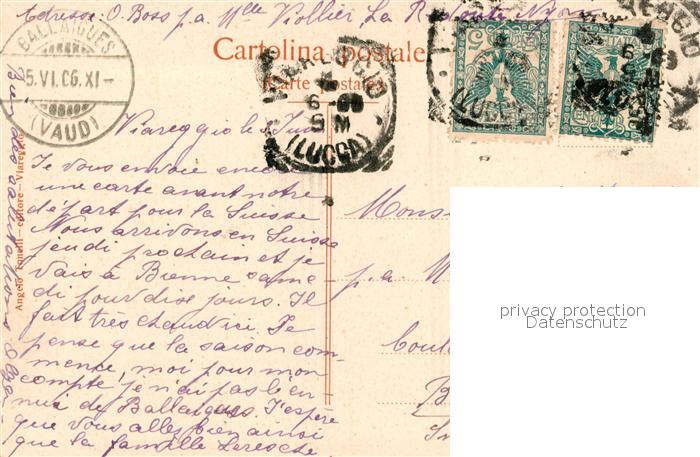 Adresse: O. Boss p. a. Mlle Viollier, La Redoute Nyon
Cartolina postale
Carte postale
BALLAIGUES
5.VI.06.XI-
(VAUD)
VIAREGGIO
6
9 M
(LUCCA)
(LUCCA)
Viareggio le Juin
Je vous envoie encore
une carte avant notre
départ pour la Suisse
Nous arrivons en Suisse
jeudi prochain et je
vais à Bienne same-
di pour dix jours. Il
fait très chaud ici. Je
pense que la saison com-
mence, moi pour mon
compte je n'ai pas bien
de Ballaigues. J'espère
que vous allez bien ainsi
que la famille Leresche.
Angelo Tonelli - editore - Viareggio
Bien des salutations Olga
Monsi
p. a. M
privacy protection
Datenschutz